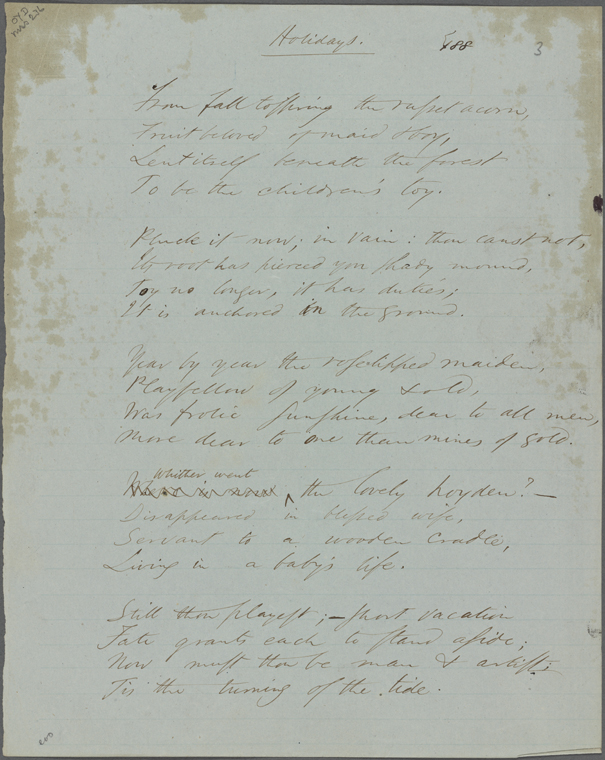 Holidays.
588
3
From fall to spring the russet acorn,
Fruit beloved of maid & boy,
Lent itself beneath the forest
To be the children's toy.
Pluck it now; in vain: thou canst not,
Its root has pierced yon shady mound,
Toy no longer, it has duties;
It is anchored in the ground.
Year by year the roselipped maiden,
Playfellow of young & old,
Was frolic sunshine, dear to all men,
More dear to one than mines of gold.
Whither went
the lovely hoyden? —
Disappeared in blessed wife,
Servant to a wooden cradle,
Living in a baby's life.
Still thou playest; — short vacation
Fate grants each to stand aside;
Now must thou be man & artist;
Tis the turning of the tide.